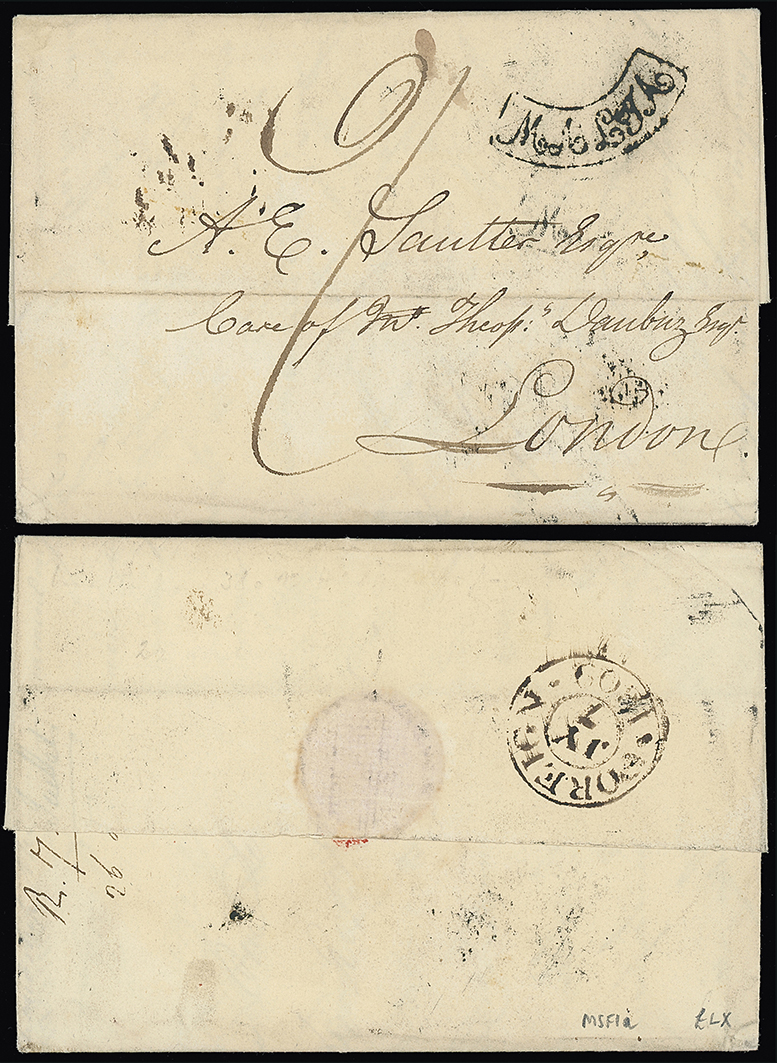 2/
MALTA
A. E. Sautter Esqre
Care of Mr. Theops: Daubuz Esqr.
London
FOREIGN · 1802
7
R. 7
92
MSF1a £LX